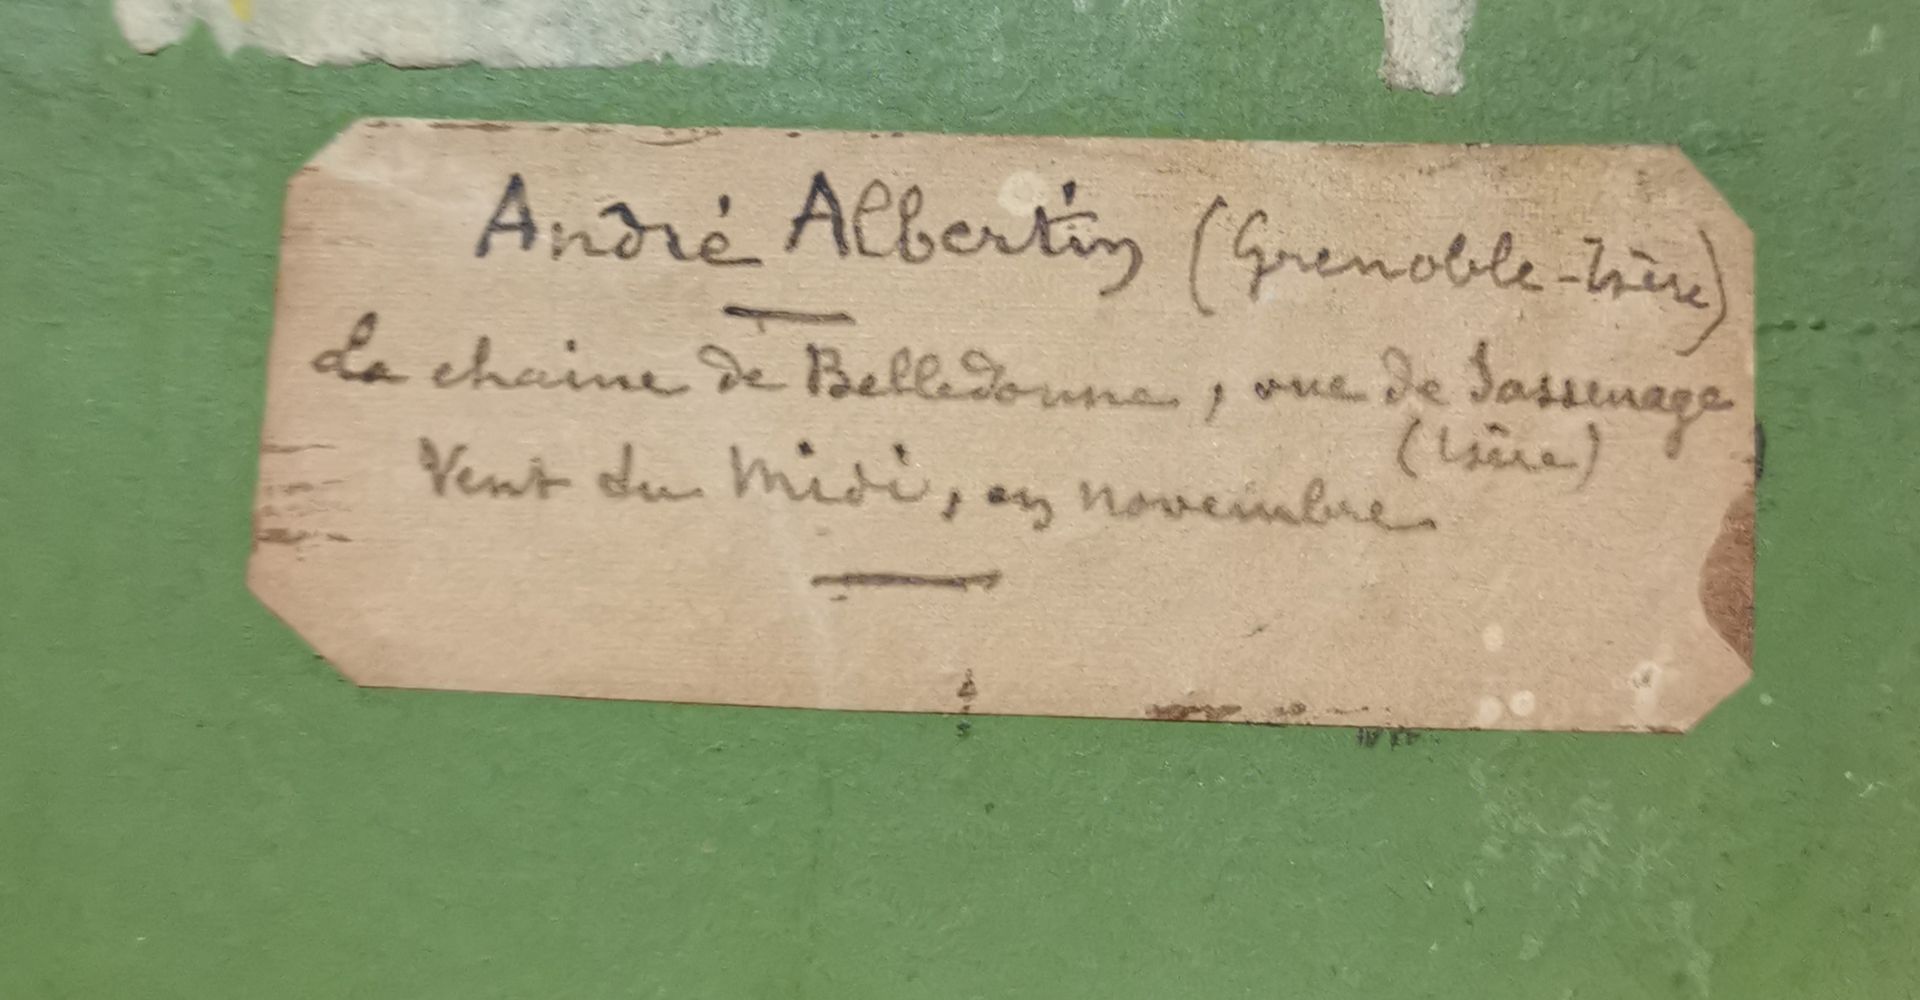 André Albertin (Grenoble-Isère)
La chaine de Belledonne, vue de Sassenage
(Isère)
Vent du Midi, en novembre.